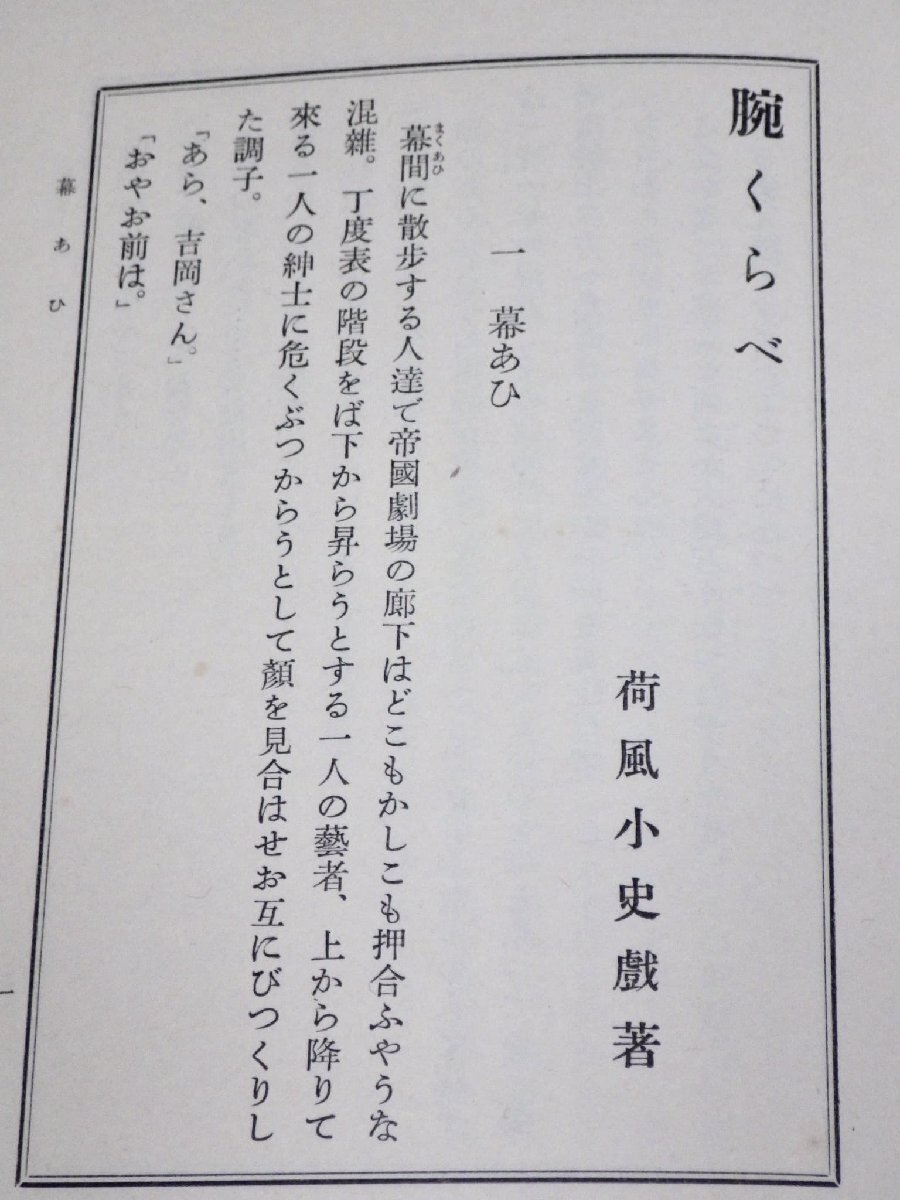 腕くらべ
荷風小史戲著
一 幕あひ
幕間に散歩する人達で帝國劇場の廊下はどこもかしこも押合ふやうな
まくあひ
混雜。丁度表の階段をば下から昇らうとする一人の藝者、上から降りて
來る一人の紳士に危くぶつからうとして顏を見合はせお互にびつくりし
た調子。
「あら、吉岡さん。」
「おやお前は。」
幕あひ
一